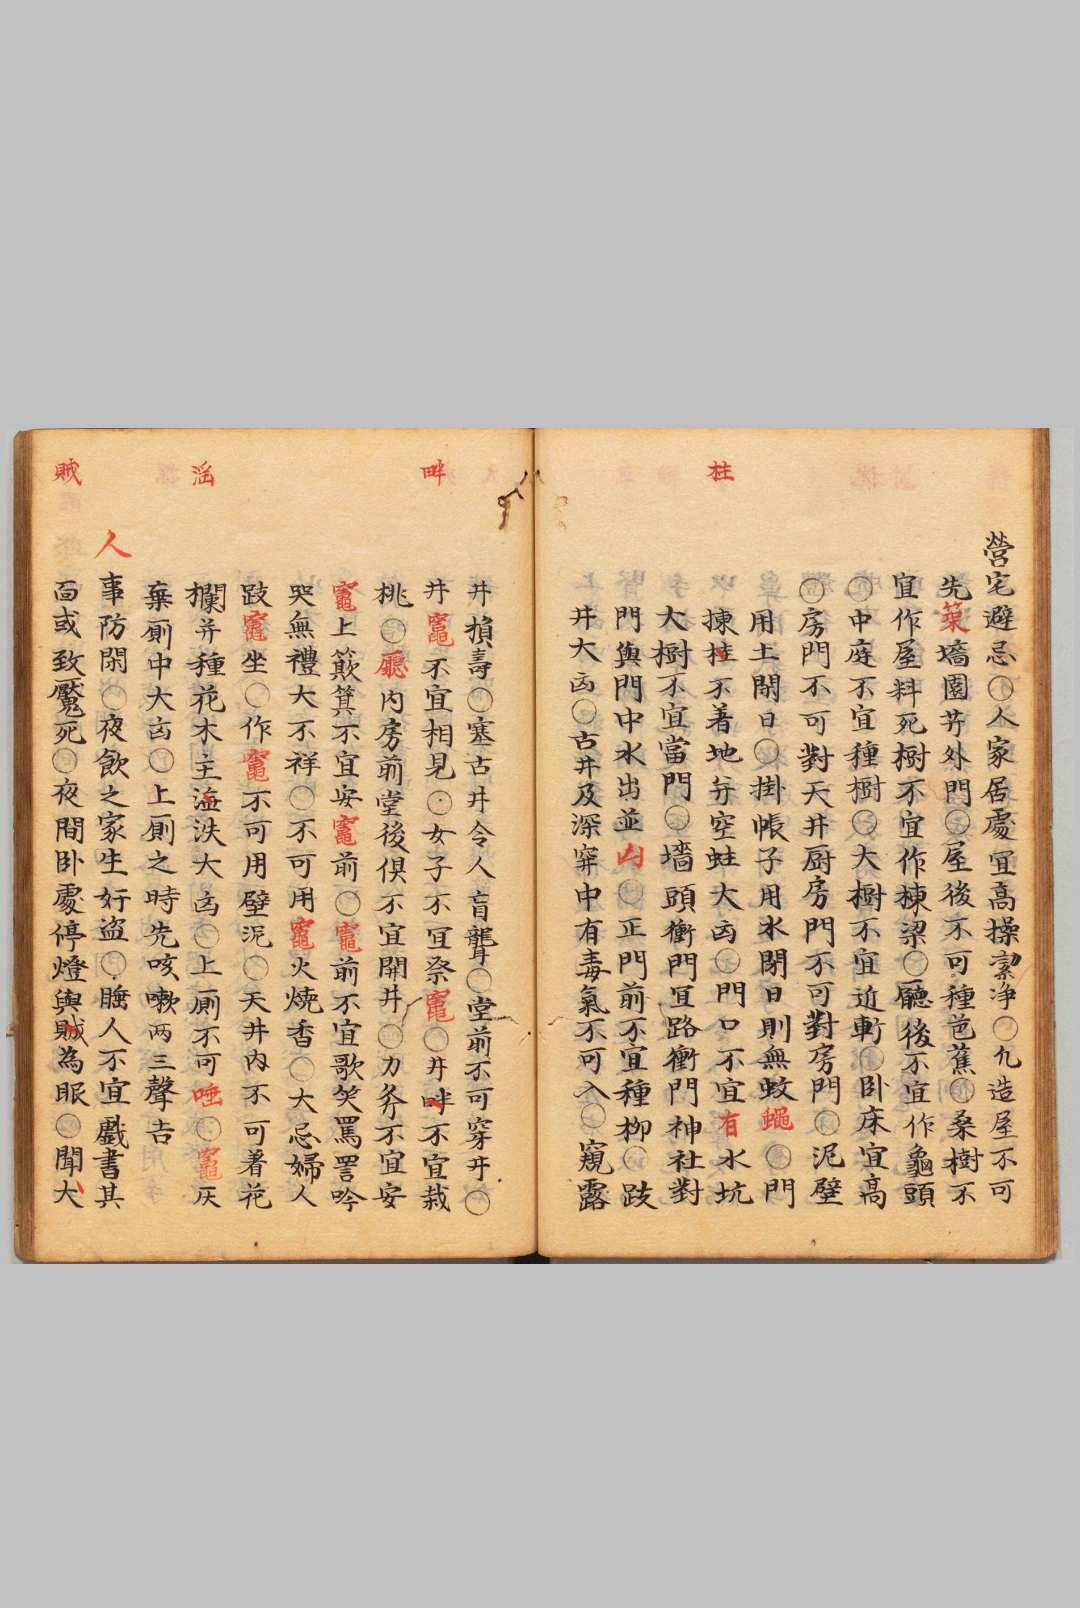 營宅避忌〇人家居處宜高操潔净〇凢造屋不可
先築墻圍并外門〇屋後不可種芭蕉〇桑樹不
宜作屋料死樹不宜作棟梁〇廳後不宜作龜頭
〇中庭不宜種樹〇大樹不宜近軒〇卧床宜高
〇房門不可對天井厨房門不可對房門〇泥壁
用土閉日〇掛帳子用水閉日則無蚊蝇〇門
柱
揀柱不着地并空蛀大凶〇門口不宜有水坑
大樹不宜當門〇墻頭衝門冝路衝門神社對
門與門中水出並凶〇正門前不宜種柳〇跂
井大凶〇古井及深穽中有毒氣不可入〇窺露
井損壽〇塞古井令人盲聾〇堂前不可穿井〇
畔
井竈不宜相見〇女子不冝祭竈〇井畔不宜栽
桃〇廳内房前堂後俱不宜開井〇刀斧不宜安
竈上簸箕不宜安竈前〇竈前不宜歌笑罵詈吟
哭無禮大不祥〇不可用竈火燒香〇大忌婦人
跂竈坐〇作竈不可用壁泥〇天井内不可着花
淫
欄并種花木主淫泆大凶〇上厠不可唾〇竈灰
棄厠中大凶〇上厠之時先咳嗽两三聲吉
人事防閑〇夜飲之家生奸盗〇睡人不宜戯書其
賊
面或致魘死〇夜間卧處停燈與賊為眼〇聞犬